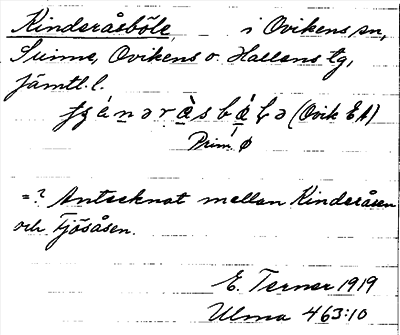 Kinderåsböle, i Ovikens sn,
Sunne, Ovikens o. Hallens tg,
Jämtl. l.
(Ovik EA)
Prim. ø
=? Antecknat mellan Kinderåsen
och Fjösåsen.
E. Terner 1919
Ulma 463:10